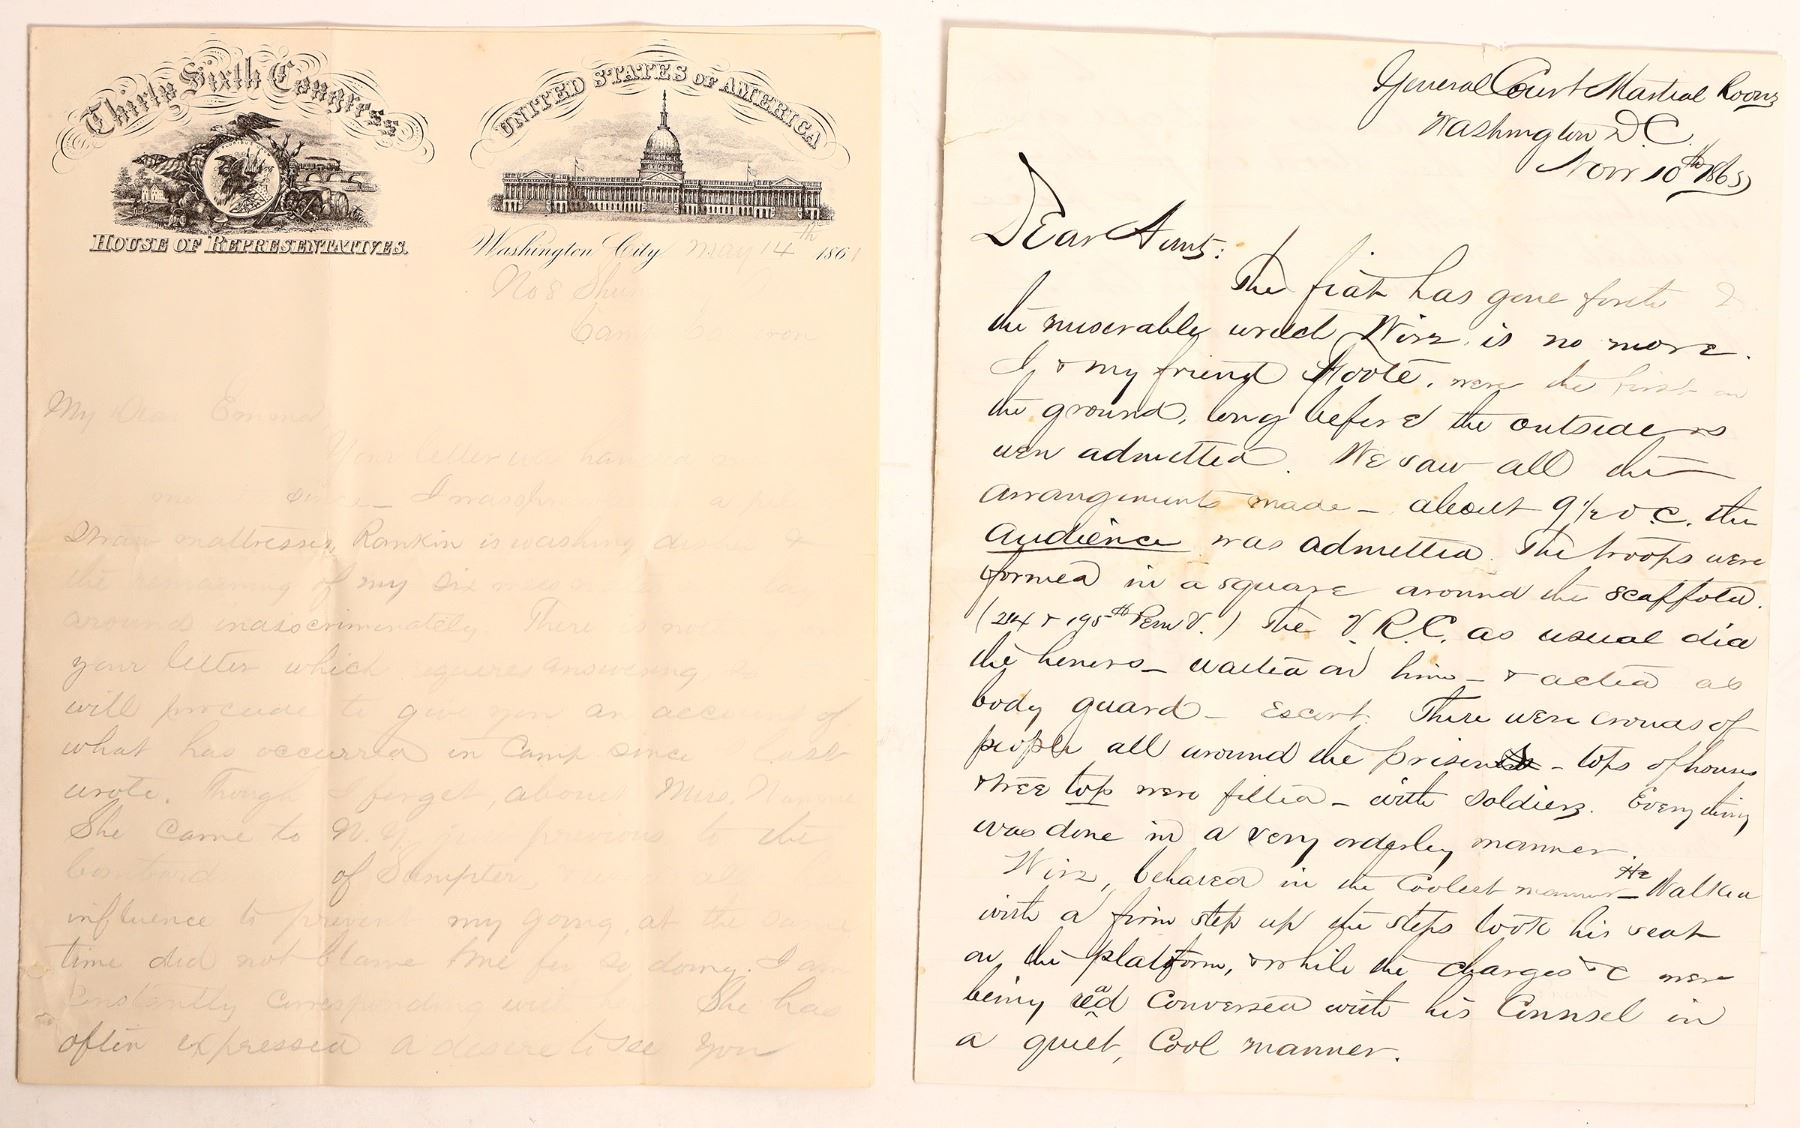 Thirty Sixth Congress
HOUSE OF REPRESENTATIVES.
UNITED STATES OF AMERICA
Washington City May 14th 1861
No 8
My Dear Emma
Your letter was handed
since - I was a
Straw mattresses, Rankin is washing dishes &
the remaining of my six
around There is not
your letter which requires answering
will procede to give you an account of
what has occurred in Camp since last
wrote. Though I forget, about Miss
She came to N.Y. just previous to the
of Sumpter,
influence to prevent my going, at the same
time did not blame me for so doing. I am
Constantly corresponding with her. She has
often expressed a desire to see you
General Court Martial Rooms
Washington D.C.
Nov 10th 1865
Dear Aunt:
The fiat has gone forth &
the miserable wretch Wirz, is no more.
I & my friend Foote, were the first on
the ground, long before the outsiders
were admitted. We saw all the
arrangements made - about 9 1/2 o.c. the
audience was admitted. The troops were
formed in a square around the scaffold.
(214 & 195th Penn V.) The V.R.C. as usual did
the heners - waited on him - & acted as
body guard - Escort. There were crowds of
people all around the prison - tops of houses
& tree tops were filled - with soldiers. Every thing
was done in a very orderley manner
Wirz, behaved in the Coolest manner - He Walked
with a firm step up the steps took his seat
on the platform, & while the charges &c were
being read conversed with his Counsel in
a quiet, Cool manner.